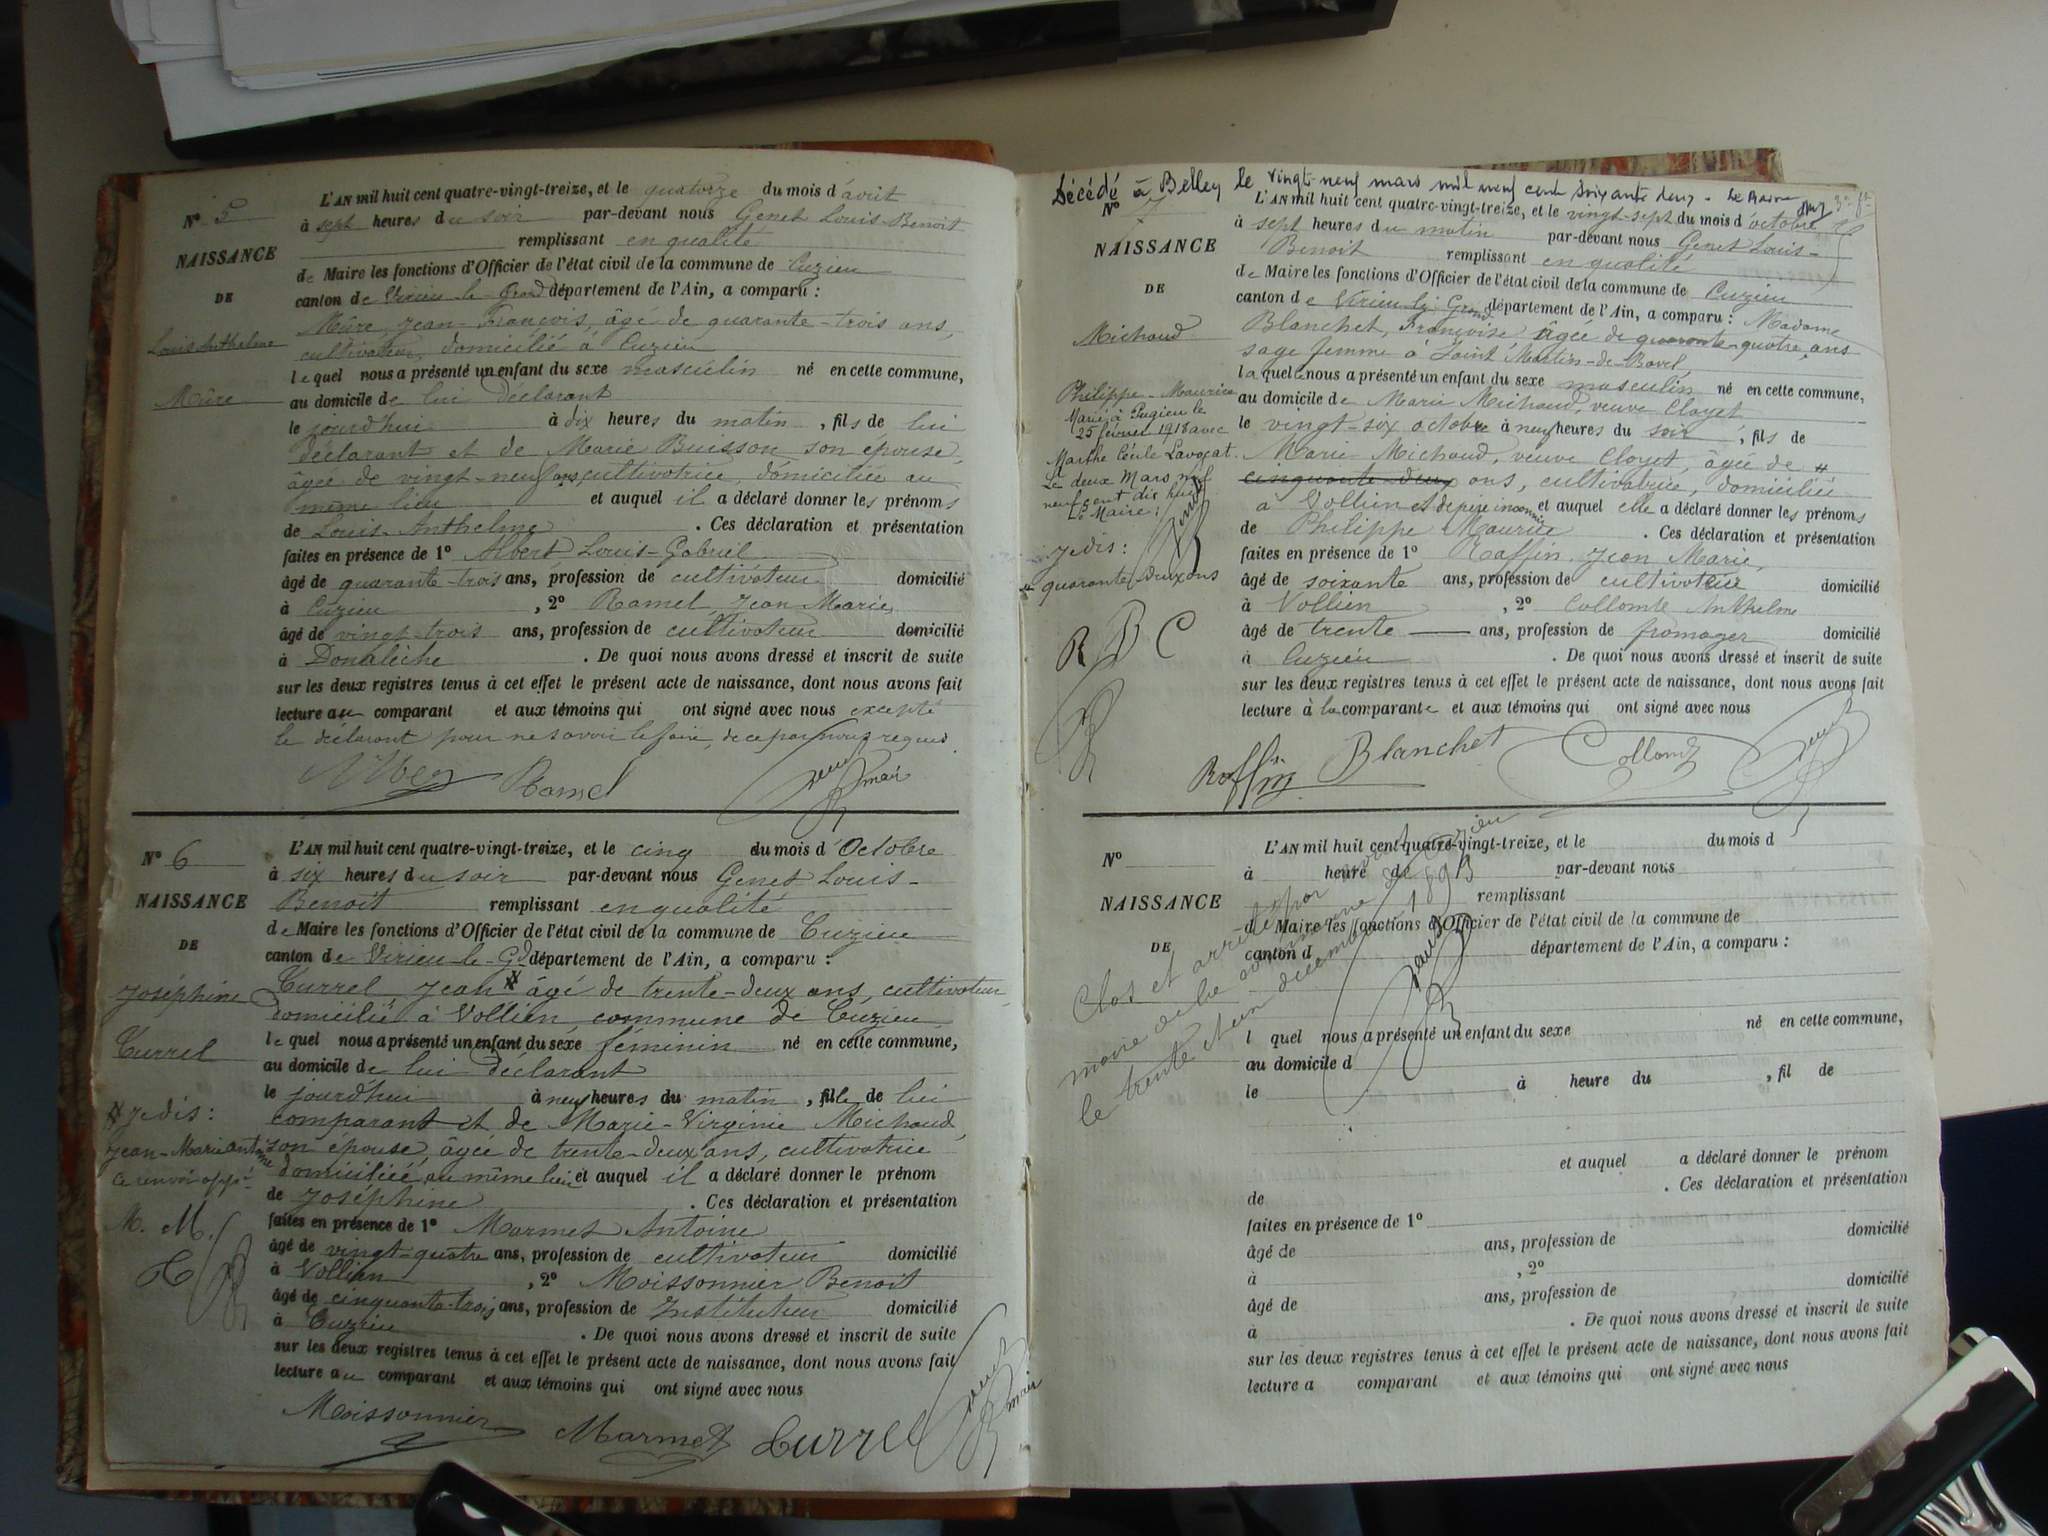 L'AN mil huit cent quatre-vingt-treize, et le quatorze du mois d'avril
N° 5
à sept heures du soir par-devant nous Genet Louis-Benoit
NAISSANCE
remplissant en qualité
de Maire les fonctions d'Officier de l'état civil de la commune de Cuzieu
DE
canton de Virieu-le-Grand département de l'Ain, a comparu :
Mûre, Jean-François, âgé de quarante-trois ans,
Louis Anthelme
cultivateur, domicilié à Cuzieu
lequel nous a présenté un enfant du sexe masculin né en cette commune,
Mûre
au domicile de lui déclarant
le jourd'hui à dix heures du matin, fils de lui
déclarant et de Marie Buisson son épouse,
âgée de vingt-neuf ans cultivatrice, domiciliée au
même lieu et auquel il a déclaré donner les prénoms
de Louis-Anthelme . Ces déclaration et présentation
faites en présence de 1° Albert Louis-Gabriel
âgé de quarante-trois ans, profession de cultivateur domicilié
à Cuzieu , 2° Ramel Jean Marie,
âgé de vingt-trois ans, profession de cultivateur domicilié
à Donalèche . De quoi nous avons dressé et inscrit de suite
sur les deux registres tenus à cet effet le présent acte de naissance, dont nous avons fait
lecture au comparant et aux témoins qui ont signé avec nous excepté
le déclarant pour ne savoir le faire, de ce par nous requis.
Ramel
maire
L'AN mil huit cent quatre-vingt-treize, et le cinq du mois d'Octobre
N° 6
à six heures du soir par-devant nous Genet Louis-
NAISSANCE
Benoit remplissant en qualité
de Maire les fonctions d'Officier de l'état civil de la commune de Cuzieu
DE
canton de Virieu-le-Gd département de l'Ain, a comparu :
Joséphine
Currel Jean # âgé de trente-deux ans, cultivateur,
domicilié à Vollien, commune de Cuzieu,
Currel
lequel nous a présenté un enfant du sexe féminin né en cette commune,
au domicile de lui déclarant
le jourd'hui à neuf heures du matin, fille de lui
# Je dis :
comparant et de Marie-Virginie Michaud,
Jean-Marie Antoine
son épouse, âgée de trente-deux ans, cultivatrice
ce renvoi app.é
domiciliée au même lieu et auquel il a déclaré donner le prénom
de Joséphine . Ces déclaration et présentation
M. M.
faites en présence de 1° Marmet Antoine
âgé de vingt-quatre ans, profession de cultivateur domicilié
à Vollien , 2° Moissonnier Benoit
âgé de cinquante-trois ans, profession de Instituteur domicilié
à Cuzieu . De quoi nous avons dressé et inscrit de suite
sur les deux registres tenus à cet effet le présent acte de naissance, dont nous avons fait
lecture au comparant et aux témoins qui ont signé avec nous
Moissonnier Marmet Currel
maire
Décédé à Belley le vingt-neuf mars mil neuf cent soixante deux. Le Maire
L'AN mil huit cent quatre-vingt-treize, et le vingt-sept du mois d'octobre
N° 7
à sept heures du matin par-devant nous Genet Louis-
NAISSANCE
Benoit remplissant en qualité
de Maire les fonctions d'Officier de l'état civil de la commune de Cuzieu
DE
canton de Virieu-le-Grand département de l'Ain, a comparu : Madame
Michaud
Blanchet, Françoise âgée de quarante-quatre ans
sage femme à Saint Martin-de-Bavel
laquelle nous a présenté un enfant du sexe masculin né en cette commune,
Philippe-Maurice
au domicile de Marie Michaud, veuve Cloyet
Marié à Pugieu le
25 février 1918 avec
Marthe Cécile Lavocat.
Le deux Mars mil
neuf cent dix huit
Le Maire :
le vingt-six octobre à neuf heures du soir, fils de
Marie Michaud, veuve Cloyet, âgée de #
cinquante-deux ans, cultivatrice, domiciliée
à Vollien et de père inconnu et auquel elle a déclaré donner les prénoms
de Philippe Maurice . Ces déclaration et présentation
Je dis :
faites en présence de 1° Raffin, Jean Marie,
# quarante-deux ans
âgé de soixante ans, profession de cultivateur domicilié
à Vollien , 2° Collomb Anthelme
R B C
âgé de trente ans, profession de fromager domicilié
à Cuzieu . De quoi nous avons dressé et inscrit de suite
sur les deux registres tenus à cet effet le présent acte de naissance, dont nous avons fait
lecture à la comparante et aux témoins qui ont signé avec nous
Raffin Blanchet Collomb
L'AN mil huit cent quatre-vingt-treize, et le du mois d
N°
à heure de par-devant nous
NAISSANCE
remplissant
d Maire les fonctions d'Officier de l'état civil de la commune de
DE
canton d département de l'Ain, a comparu :
Clos et arrêté par nous
maire de la commune de Cuzieu
le trente et un décembre 1893
l quel nous a présenté un enfant du sexe né en cette commune,
au domicile d
le à heure du , fil de
et auquel a déclaré donner le prénom
de . Ces déclaration et présentation
faites en présence de 1°
âgé de ans, profession de domicilié
à , 2°
âgé de ans, profession de domicilié
à . De quoi nous avons dressé et inscrit de suite
sur les deux registres tenus à cet effet le présent acte de naissance, dont nous avons fait
lecture a comparant et aux témoins qui ont signé avec nous